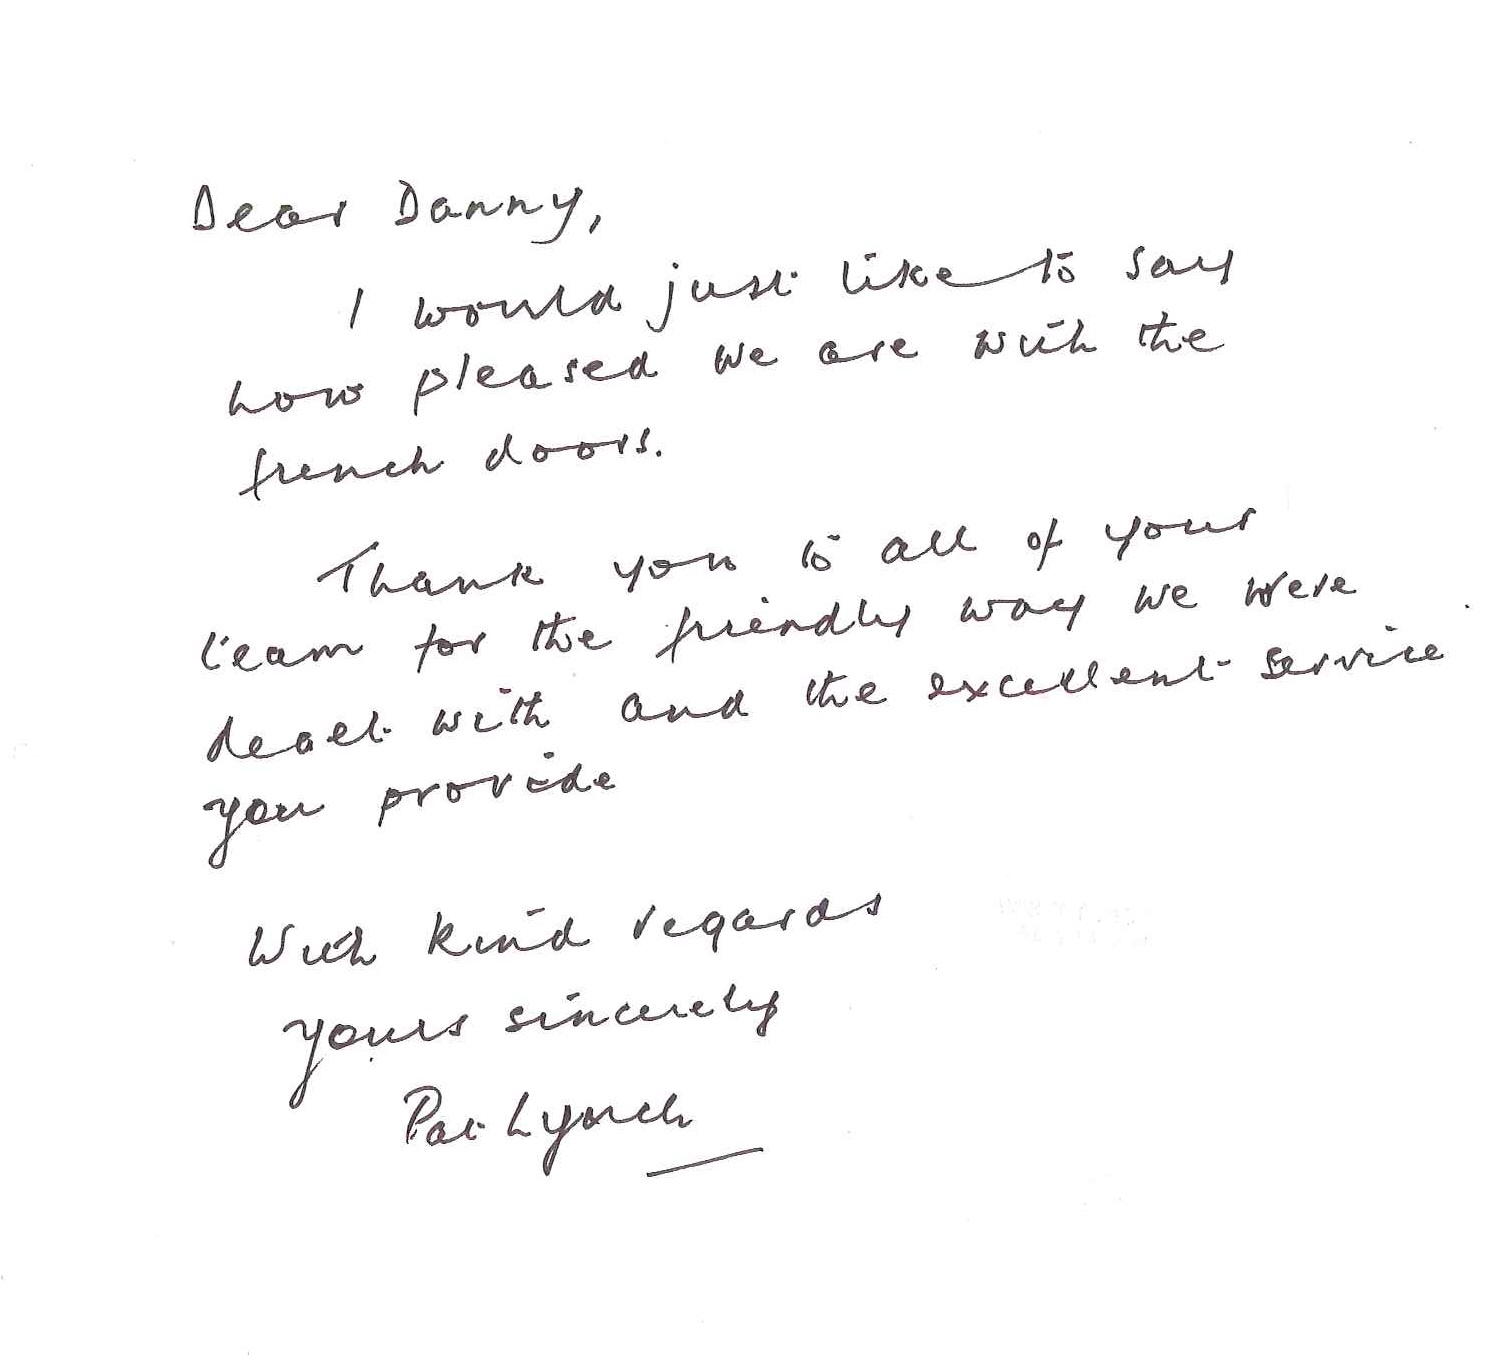 Dear Danny,
I would just like to say
how pleased we are with the
french doors.
Thank you to all of your
team for the friendly way we were
dealt with and the excellent service
you provide
With kind regards
yours sincerely
Pat Lynch